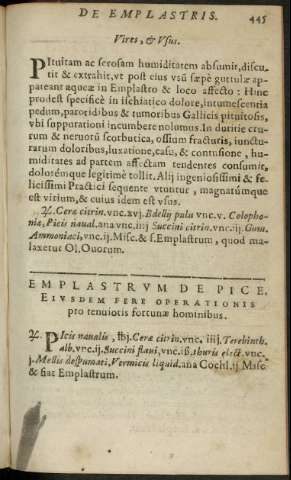 DE EMPLASTRIS. 445
Vires, & Vsus.
PItuitam ac serosam humiditatem absumit, discu-
tit & extrahit, vt post eius vsū sæpè guttulæ ap-
pareant aqueæ in Emplastro & loco affecto: Hinc
prodest specificè in ischiatico dolore, intumescentia
pedum, parotidibus & tumoribus Gallicis pituitosis,
vbi suppurationi incumbere nolumus. In duritie cru-
rum & neruorū scorbutica, ossium fracturis, iunctu-
rarum doloribus, luxatione, casu, & contusione, hu-
miditates ad partem affectam tendentes consumit,
dolorémque legitimè tollit. Alij ingeniosissimi & fe-
licissimi Practici sequente vtuntur, magnatúmque
est virium, & cuius idem est vsus.
♃. Ceræ citrin. vnc. xvj. Bdellij pulu vnc. v. Colopho-
niæ, Picis naual. ana vnc. iiij Succini citrin. vnc. ij. Gum.
Ammoniaci, vnc. ij. Misc. & f. Emplastrum, quod ma-
laxetur Ol. Ouorum.
EMPLASTRVM DE PICE.
EIVSDEM FERE OPERATIONIS
pro tenuioris fortunæ hominibus.
♃. PIcis naualis, ℔j. Ceræ citrin. vnc. iiij. Terebinth.
alb. vnc. ij. Succini flaui, vnc. iß. thuris elect. vnc.
j. Mellis despumati, Vermicis liquid. ana Cochl. ij Misc
& fiat Emplastrum.